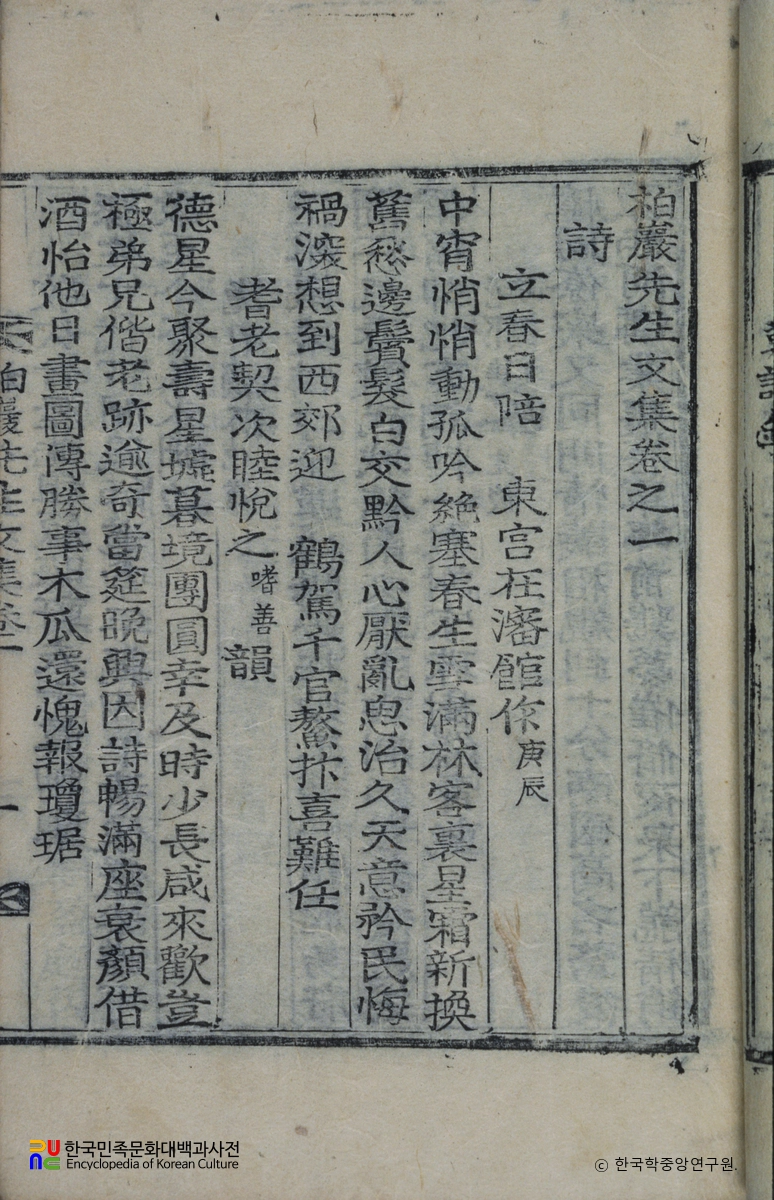 柏巖先生文集卷之一
詩
立春日陪 東宮在瀋館作 庚辰
中宵悄悄動孤吟絶塞春生雪滿林客裏星霜新換
舊愁邊鬢髮白交黔人心厭亂思治久天意矜民悔
禍深想到西郊迎 鶴駕千官鰲抃喜難任
耆老契次睦悅之 嗜善 韻
德星今聚壽星墟暮境團圓幸及時少長咸來歡豈
極弟兄偕老跡逾奇當筵晩興因詩暢滿座衰顏借
酒怡他日畫圖傳勝事木瓜還愧報瓊琚
柏巖先生文集卷一
一
한국민족문화대백과사전
Encyclopedia of Korean Culture
© 한국학중앙연구원.